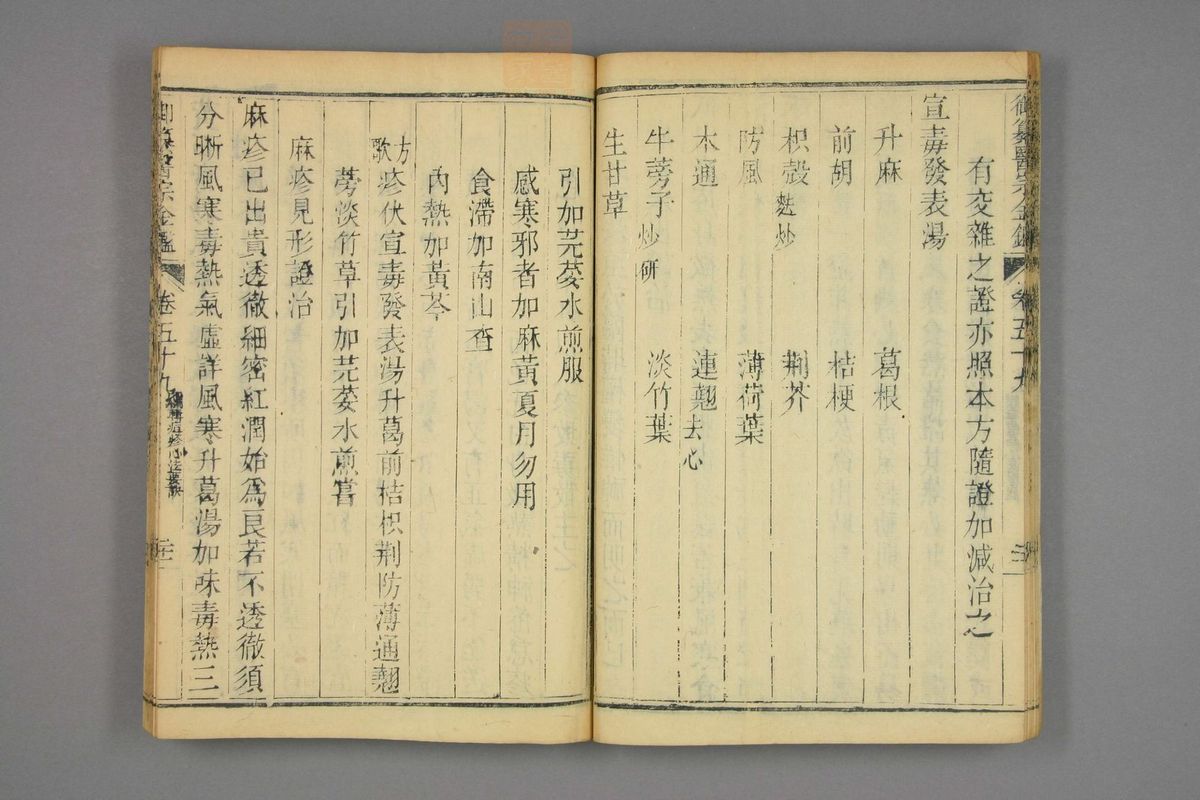 御纂醫宗金鑑 卷五十九
有夾雜之證亦照本方隨證加減治之
宣毒發表湯
升麻 葛根
前胡 桔梗
枳殼麩炒 荆芥
防風 薄荷葉
木通 連翹去心
牛蒡子炒研 淡竹葉
生甘草
引加芫荽水煎服
感寒邪者加麻黃夏月勿用
食滯加南山查
內熱加黃芩
方歌 疹伏宣毒發表湯升葛前桔枳荆防薄通翹
蒡淡竹草引加芫荽水煎嘗
麻疹見形證治
麻疹已出貴透徹細密紅潤始爲良若不透徹須
分晰風寒毒熱氣虛詳風寒升葛湯加味毒熱三
卷五十九 痘疹心法要訣